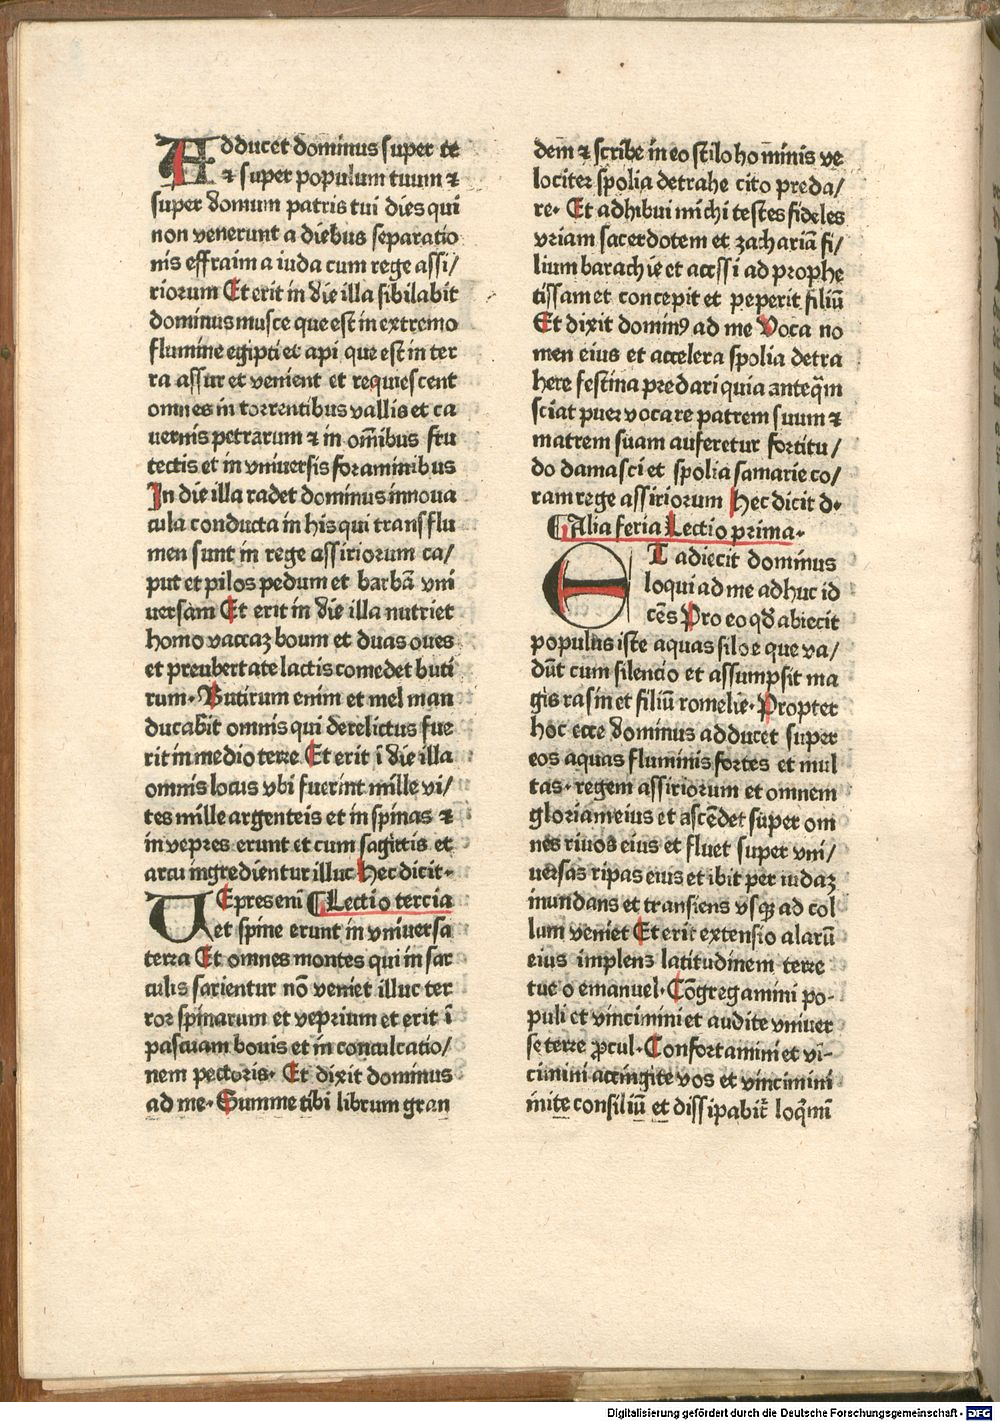 Adducet dominus super te
⁊ super populum tuum ⁊
super domum patris tui dies qui
non venerunt a diebus separatio
nis effraim a iuda cum rege assi/
riorum Et erit in die illa sibilabit
dominus musce que est in extremo
flumine egipti et api que est in ter
ra assur et venient et requiescent
omnes in torrentibus vallis et ca
uernis petrarum ⁊ in om̄ibus fru
tectis et in vniuersis foraminibus
In die illa radet dominus innoua
cula conducta in his qui trans flu
men sunt in rege assiriorum ca/
put et pilos pedum et barbā vni
uersam Et erit in die illa nutriet
homo vaccaz boum et duas oues
et pre vbertate lactis comedet buti
rum· Butirum enim et mel man
ducabit omnis qui derelictus fue
rit in medio terre Et erit ī die illa
omnis locus vbi fuerint mille vi/
tes mille argenteis et in spinas ⁊
in vepres erunt et cum sagittis et
arcu ingredientur illuc Hec dicit·
VEpres enī ¶ Lectio tercia
et spine erunt in vniuersa
terra Et omnes montes qui in sar
culis sarientur nō veniet illuc ter
ror spinarum et veprium et erit ī
pascuam bouis et in conculcatio/
nem pectoris· Et dixit dominus
ad me· Summe tibi librum gran
dem̄ ⁊ scribe in eo stilo hominis ve
lociter spolia detrahe cito preda/
re· Et adhibui michi testes fideles
vriam sacerdotem et zachariā fi/
lium barachie et accessi ad prophe
tissam et concepit et peperit filiū
Et dixit dominꝰ ad me Voca no
men eius et accelera spolia detra
here festina predari quia anteq̄m
sciat puer vocare patrem suum ⁊
matrem suam auferetur fortitu/
do damasci et spolia samarie co/
ram rege assiriorum Hec dicit d·
¶ Alia feria Lectio prima·
ET adiecit dominus
loqui ad me adhuc id
cēs Pro eo qđ abiecit
populus iste aquas siloe que va/
dūt cum silencio et assumpsit ma
gis rasin et filiū romelie· Propter
hoc ecce dominus adducet super
eos aquas fluminis fortes et mul
tas· regem assiriorum et omnem
gloriam eius et ascēdet super om
nes riuos eius et fluet super vni/
uersas ripas eius et ibit per iudaz
inundans et transiens vsqꝫ ad col
lum veniet Et erit extensio alarū
eius implens latitudinem terre
tue o emanuel· Cōgregamini po-
puli et vincimini et audite vniuer
se terre ꝓcul· Confortamini et vi-
cimini accingite vos et vincimini
inite consiliū et dissipabit̄ loq̄mī
Digitalisierung gefördert durch die Deutsche Forschungsgemeinschaft - DFG